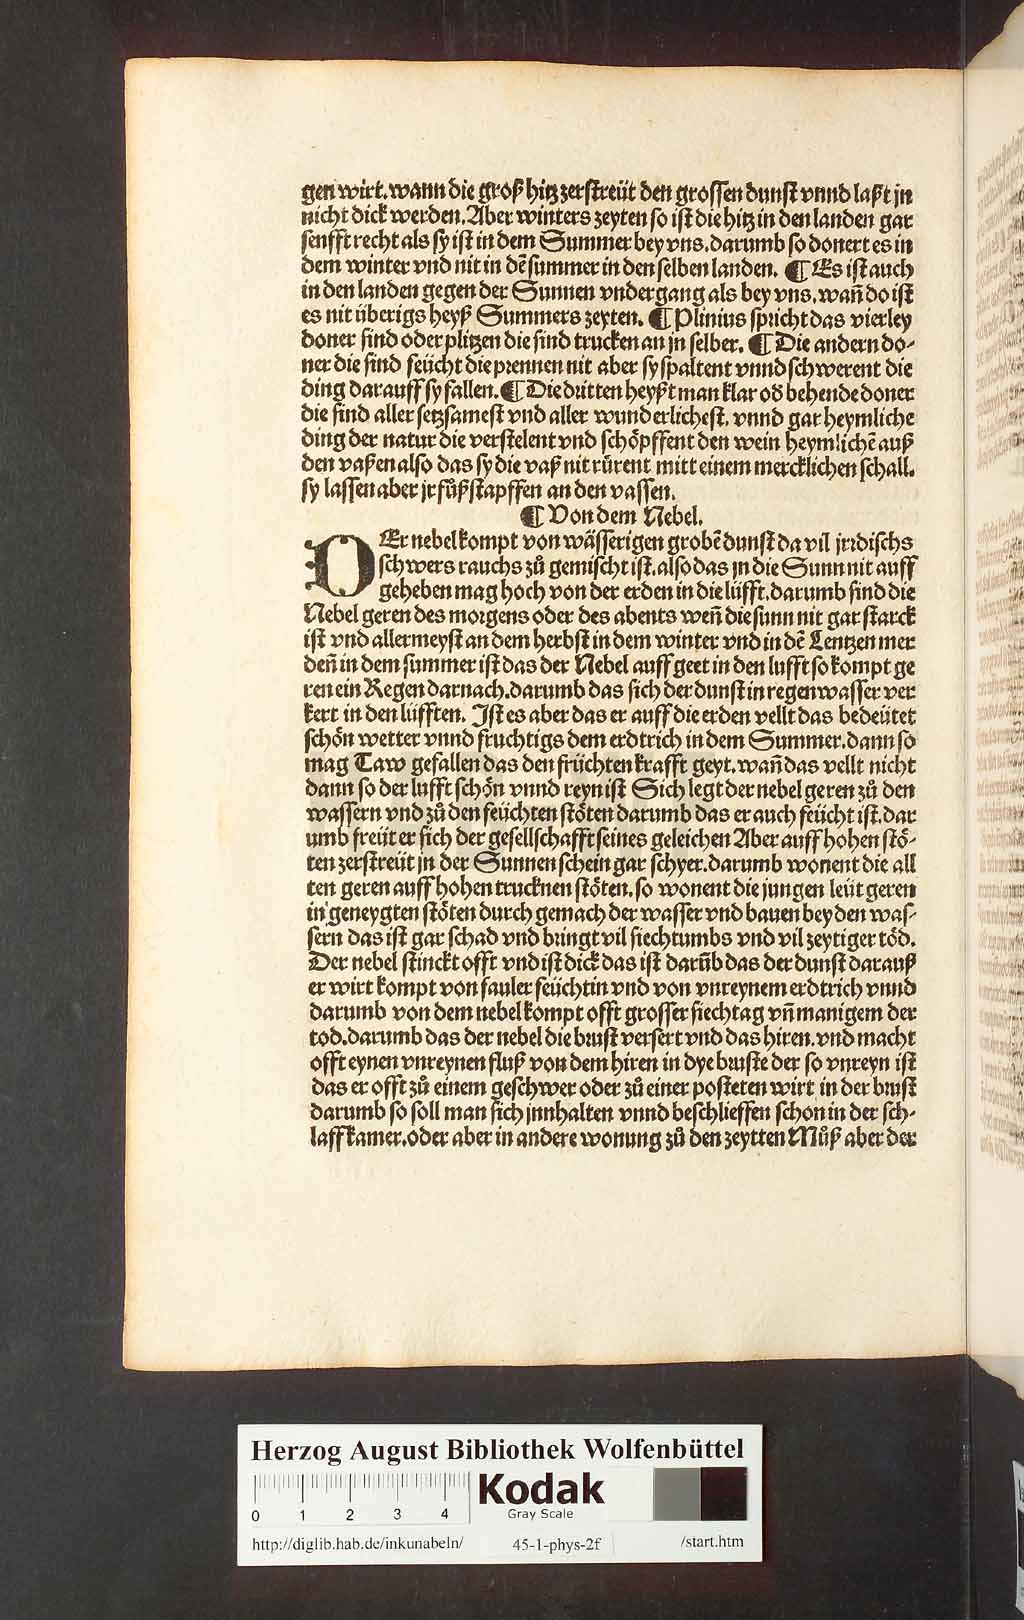 gen wirt. wann die groß hitz zerstreüt den grossen dunst vnnd laßt jn
nicht dick werden. Aber winters zeyten so ist die hitz in den landen gar
senfft recht als sy ist in dem Summer bey vns. darumb so donert es in
dem winter vnd nit in dē summer in den selben landen. ¶ Es ist auch
in den landen gegen der Sunnen vndergang als bey vns. wañ do ist
es nit überigs heyß Summers zeyten. ¶ Plinius spricht das vierley
doner sind oder plitzen die sind trucken an jn selber. ¶ Die andern do-
ner die sind feücht die prennen nit aber sy spaltent vnnd schwerent die
ding darauff sy fallen. ¶ Die dritten heyßt man klar od behende doner
die sind aller setzsamest vnd aller wunderlichest. vnnd gar heymliche
ding der natur die verstelent vnd schöpffent den wein heymlichē auß
den vaßen also das sy die vaß nit rürent mitt einem mercklichen schall.
sy lassen aber jr fůßstapffen an den vassen.
¶ Von dem Nebel.
DEr nebel kompt von wässerigen grobē dunst da vil jrdischs
schwers rauchs zů gemischt ist. also das jn die Sunn nit auff
geheben mag hoch von der erden in die lüfft. darumb sind die
Nebel geren des morgens oder des abents weñ die sunn nit gar starck
ist vnd allermeyst an dem herbst in dem winter vnd in dē Lentzen mer
deñ in dem summer ist das der Nebel auff geet in den lufft so kompt ge
ren ein Regen darnach. darumb das sich der dunst in regenwasser ver
kert in den lüfften. Ist es aber das er auff die erden vellt das bedeütet
schön wetter vnnd fruchtigs dem erdtrich in dem Summer. dann so
mag Taw gefallen das den früchten krafft geyt. wañ das vellt nicht
dann so der lufft schön vnnd reyn ist Sich legt der nebel geren zů den
wassern vnd zů den feüchten stöten darumb das er auch feücht ist. dar
umb freüt er sich der gesellschafft seines geleichen Aber auff hohen stö-
ten zerstreüt jn der Sunnen schein gar schyer. darumb wonent die all
ten geren auff hohen trucknen stöten. so wonent die jungen leüt geren
in geneygten stöten durch gemach der wasser vnd bauen bey den was-
sern das ist gar schad vnd bringt vil siechtumbs vnd vil zeytiger töd.
Der nebel stinckt offt vnd ist dick das ist darūb das der dunst darauß
er wirt kompt von fauler feüchtin vnd von vnreynem erdtrich vnnd
darumb von dem nebel kompt offt grosser siechtag vñ manigem der
tod. darumb das der nebel die brust versert vnd das hiren. vnd macht
offt eynen vnreynen fluß von dem hiren in dye bruste der so vnreyn ist
das er offt zů einem geschwer oder zů einer posteten wirt in der brust
darumb so soll man sich jnnhalten vnnd beschliessen schon in der sch-
laffkamer. oder aber in andere wonung zů den zeytten Můß aber der
Herzog August Bibliothek Wolfenbüttel
0 1 2 3 4
Kodak
Gray Scale
http://diglib.hab.de/inkunabeln/ 45-1-phys-2f /start.htm